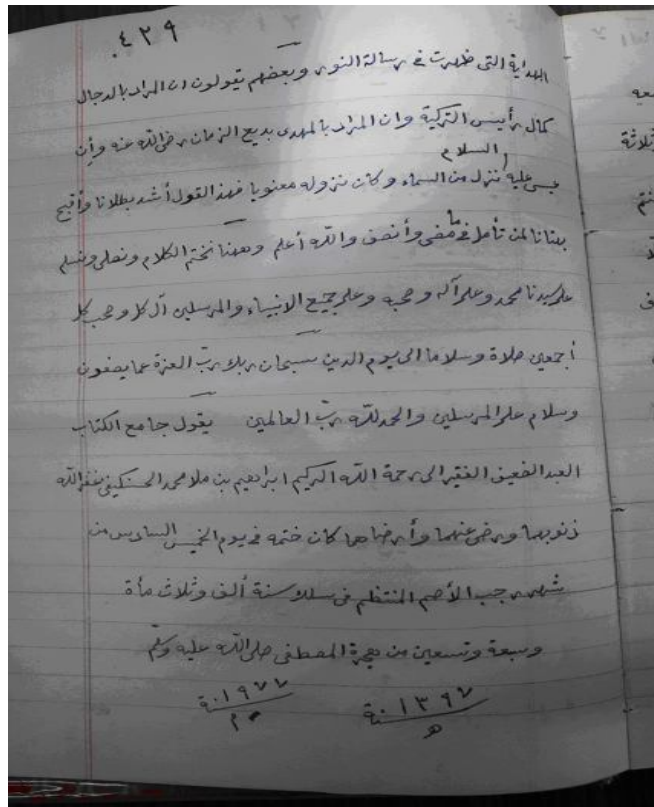 ٤٢٩.
الهداية التى ظهرت فى رسالة النور وبعضهم يقولون ان المراد بالدجال
كمال رأيس التركية وان المراد بالمهدى بديع الزمان رضى الله عنه وأن
عيسى عليه السلام نزل من السماء وكان نزوله معنويا فهذا القول أشد بطلانا وأقبح
بهتانا لمن تأمل فى ما مضى وأنصف والله أعلم وههنا نختم الكلام ونصلى ونسلم
على سيدنا محمد وعلى آله وصحبه وعلى جميع الانبياء والمرسلين آل كل وصحب كل
أجمعين صلاة وسلاما الى يوم الدين سبحان ربك ربّ العزة عما يصفون
وسلام على المرسلين والحمد لله ربّ العالمين يقول جامع الكتاب
العبد الضعيف الفقير الى رحمة الله الكريم ابراهيم بن ملا محمد الحسنكيفى غفر الله
ذنوبهما ورضى عنهما وأرضاهما كان ختمه فى يوم الخميس السادس من
شهر رجب الأصم المنتظم فى سلك سنة ألف وثلاث مأة
وسبعة وتسعين من هجرة المصطفى صلى الله عليه وسلم
١٣٩٧ سنة هـ ١٩٧٧ سنة م